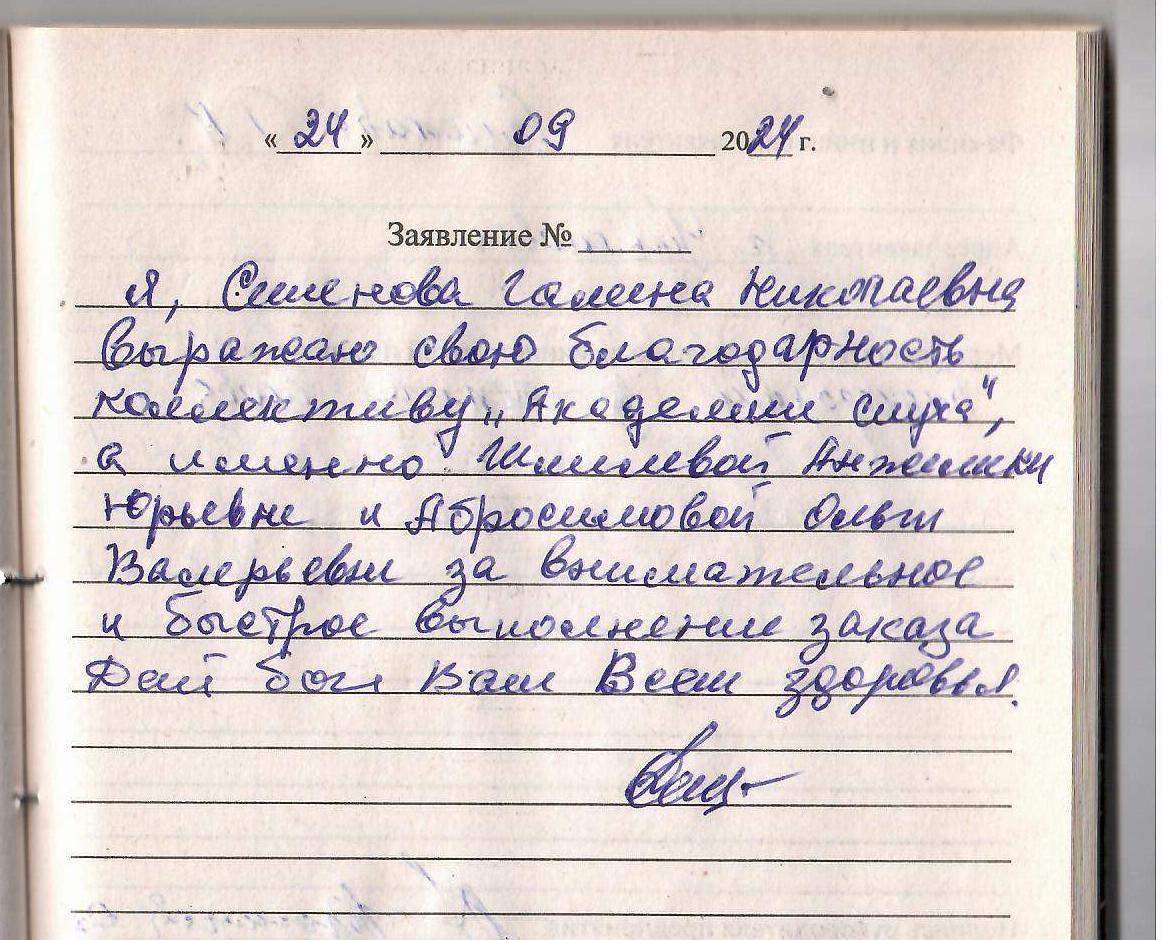 « 24 » 09 2024 г.
Заявление №
Я, Семенова Галина Николаевна
выражаю свою благодарность
коллективу „Академии слуха",
а именно Анжелики
Юрьевне и Абросимовой Ольги
Валерьевне за внимательное
и быстрое выполнение заказа
Дай бог Вам Всем здоровья.